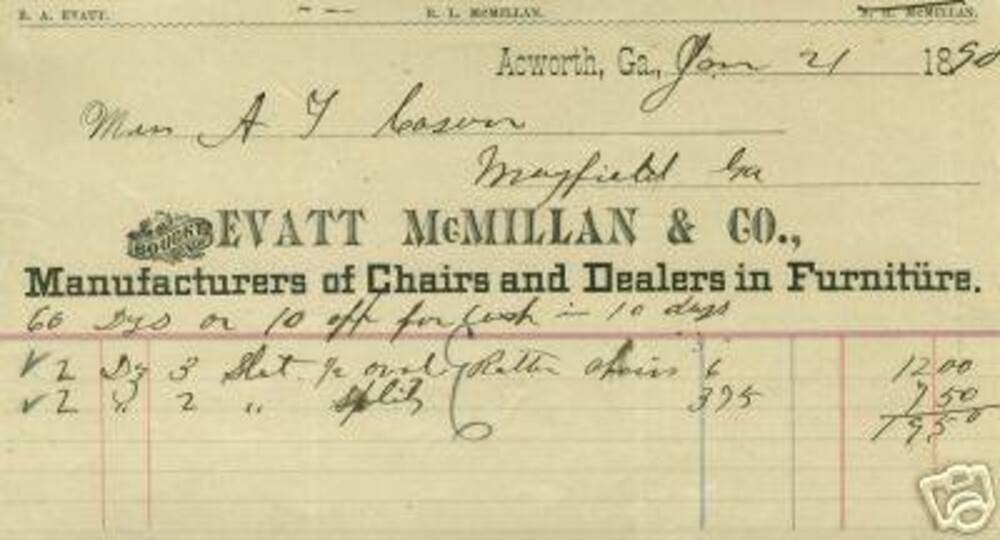 E. A. EVATT. R. L. McMILLAN. McMILLAN.
Acworth, Ga., Jan 21 1890
A Y Cason
Mayfield Ga
BOUGHT EVATT McMILLAN & CO.,
Manufacturers of Chairs and Dealers in Furnitüre.
60 Dys or 10 off for Cash in 10 days
✓ 2 Dz 3 Slat oval chairs 6 12 00
✓ 2 " 2 " split 375 7 50
19 50